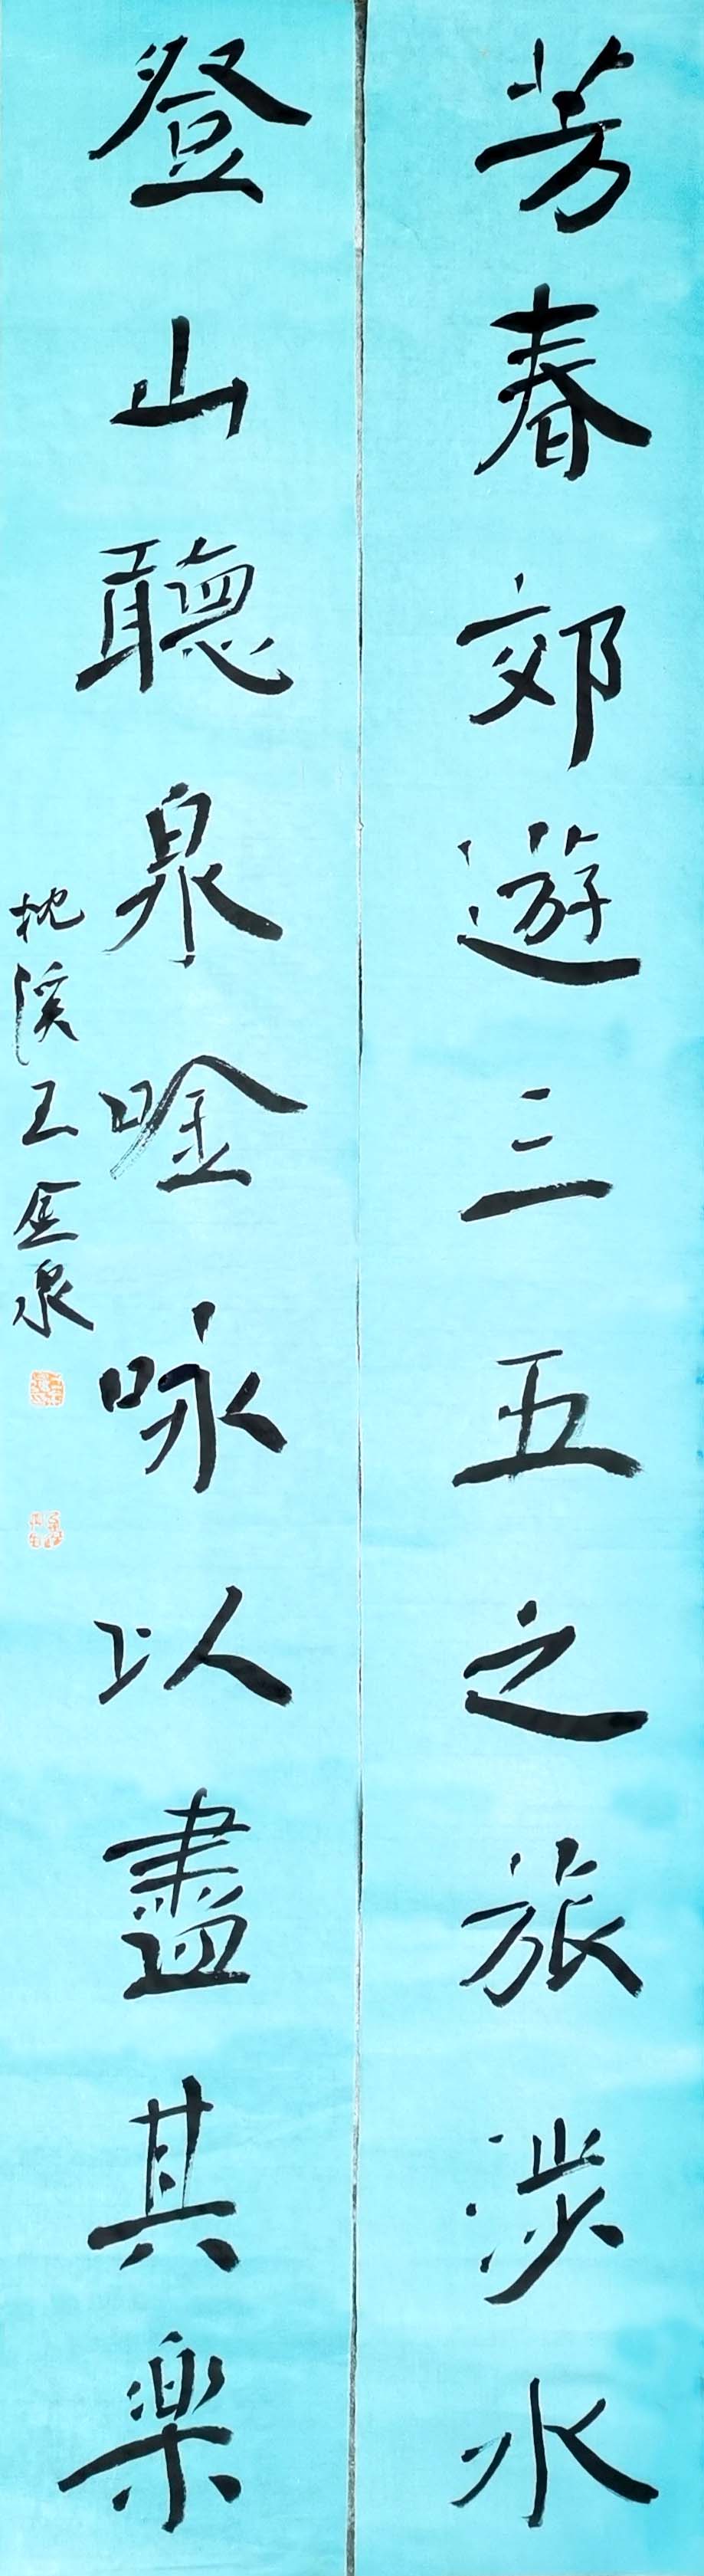 芳春郊遊三五之旅涉水
登山聽泉唫咏以盡其樂
枕溪王金泉